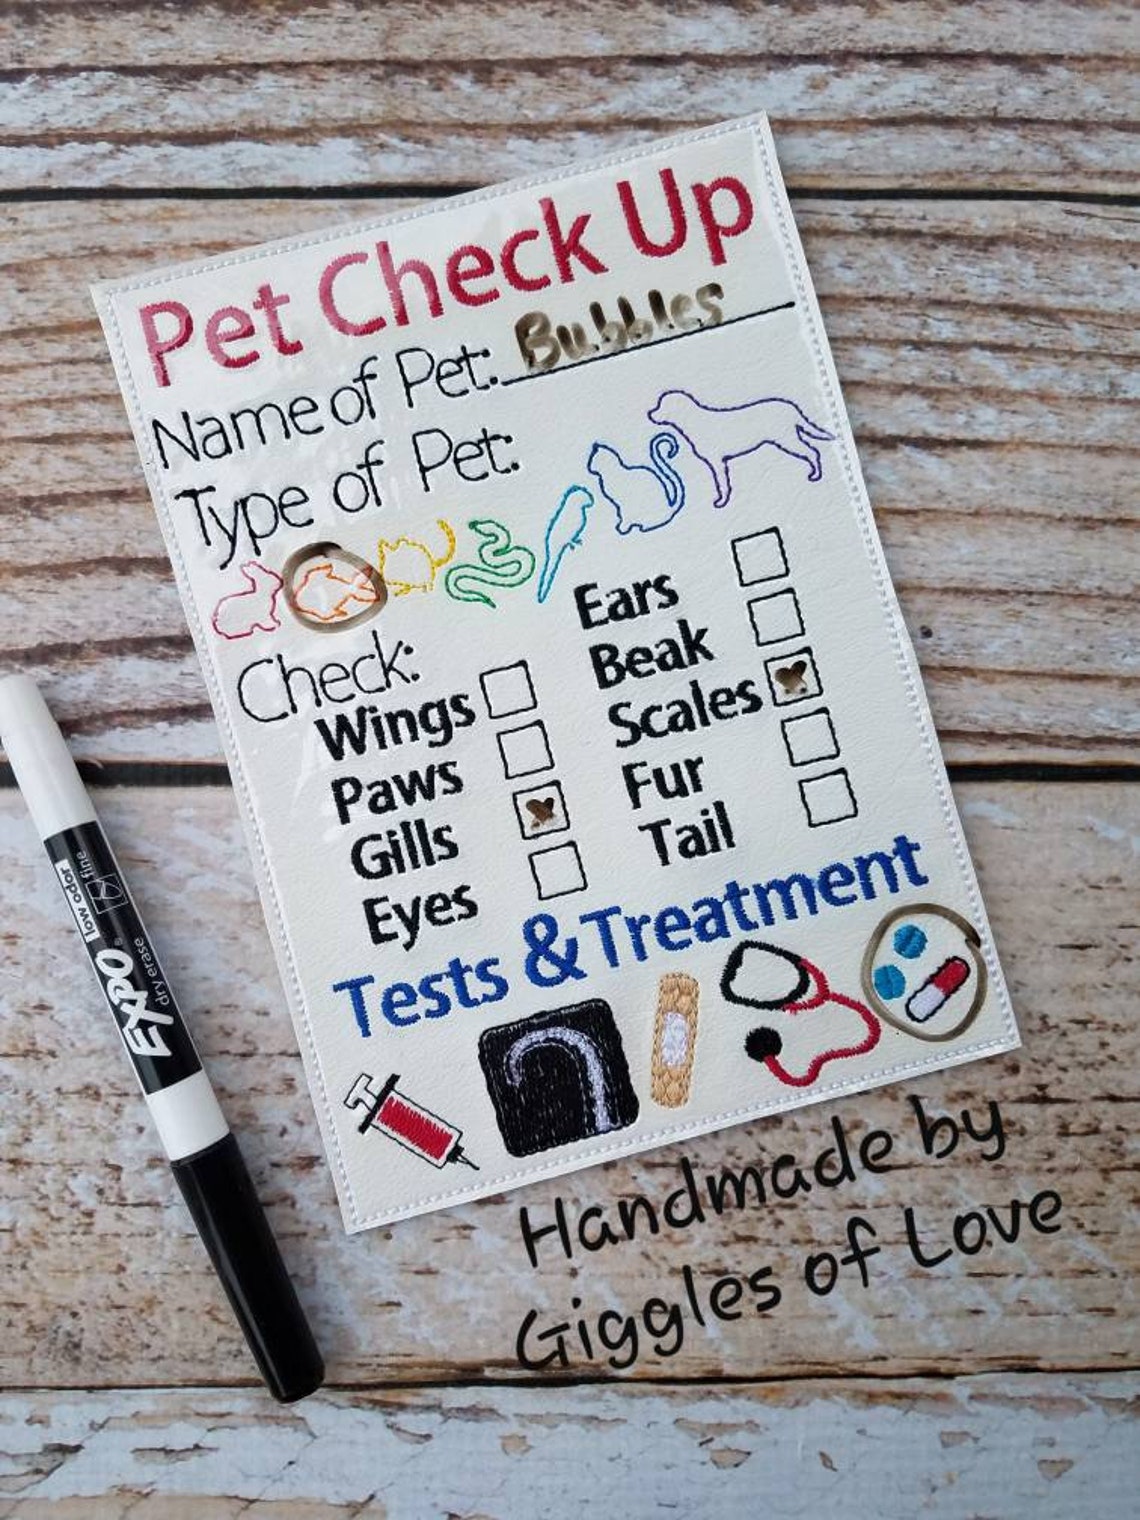 Pet Check Up
Name of Pet: Bubbles
Type of Pet:
Check:
Wings
Paws
Gills
Eyes
Ears
Beak
Scales
Fur
Tail
Tests & Treatment
EXPO®
low odor
fine
dry erase
Handmade by
Giggles of Love